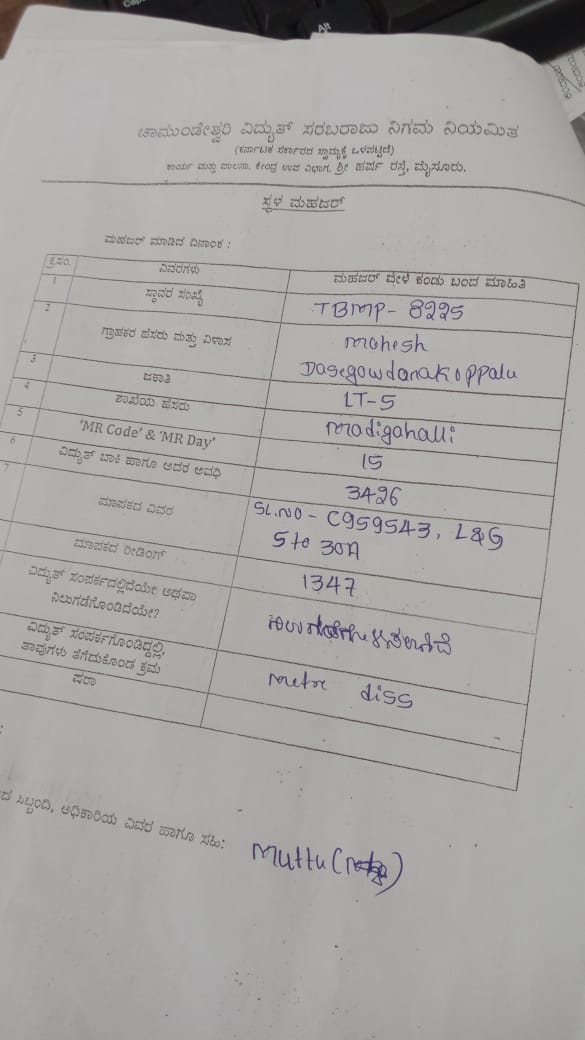 Alt
ಚಾಮುಂಡೇಶ್ವರಿ ವಿದ್ಯುತ್ ಸರಬರಾಜು ನಿಗಮ ನಿಯಮಿತ
(ಕರ್ನಾಟಕ ಸರ್ಕಾರದ ಸ್ವಾಮ್ಯಕ್ಕೆ ಒಳಪಟ್ಟಿದೆ)
ಕಾರ್ಯ ಮತ್ತು ಪಾಲನಾ, ಕೇಂದ್ರ ಉಪ ವಿಭಾಗ, ಶ್ರೀ ಹರ್ಷ ರಸ್ತೆ, ಮೈಸೂರು.
ಸ್ಥಳ ಮಹಜರ್
ಮಹಜರ್ ಮಾಡಿದ ದಿನಾಂಕ :
ಕ್ರಸಂ. ವಿವರಗಳು ಮಹಜರ್ ವೇಳೆ ಕಂಡು ಬಂದ ಮಾಹಿತಿ
1 ಸ್ಥಾವರ ಸಂಖ್ಯೆ TBMP- 8225
2 ಗ್ರಾಹಕರ ಹೆಸರು ಮತ್ತು ವಿಳಾಸ mahesh
Dasegowdanakoppalu
3 ಜಕಾತಿ LT-5
4 ಶಾಖೆಯ ಹೆಸರು madigahalli
5 'MR Code' & 'MR Day' 15
6 ವಿದ್ಯುತ್ ಬಾಕಿ ಹಾಗೂ ಅದರ ಅವಧಿ 3426
7 ಮಾಪಕದ ವಿವರ SL.NO - C959543, L&G
5 to 30A
ಮಾಪಕದ ರೀಡಿಂಗ್ 1347
ವಿದ್ಯುತ್ ಸಂಪರ್ಕದಲ್ಲಿದೆಯೇ ಅಥವಾ
ನಿಲುಗಡೆಗೊಂಡಿದೆಯೇ?
ವಿದ್ಯುತ್ ಸಂಪರ್ಕಗೊಂಡಿದ್ದಲ್ಲಿ,
ತಾವುಗಳು ತೆಗೆದುಕೊಂಡ ಕ್ರಮ metre diss
ಷರಾ
ಸಿಬ್ಬಂದಿ, ಅಧಿಕಾರಿಯ ವಿವರ ಹಾಗೂ ಸಹಿ: Muttu